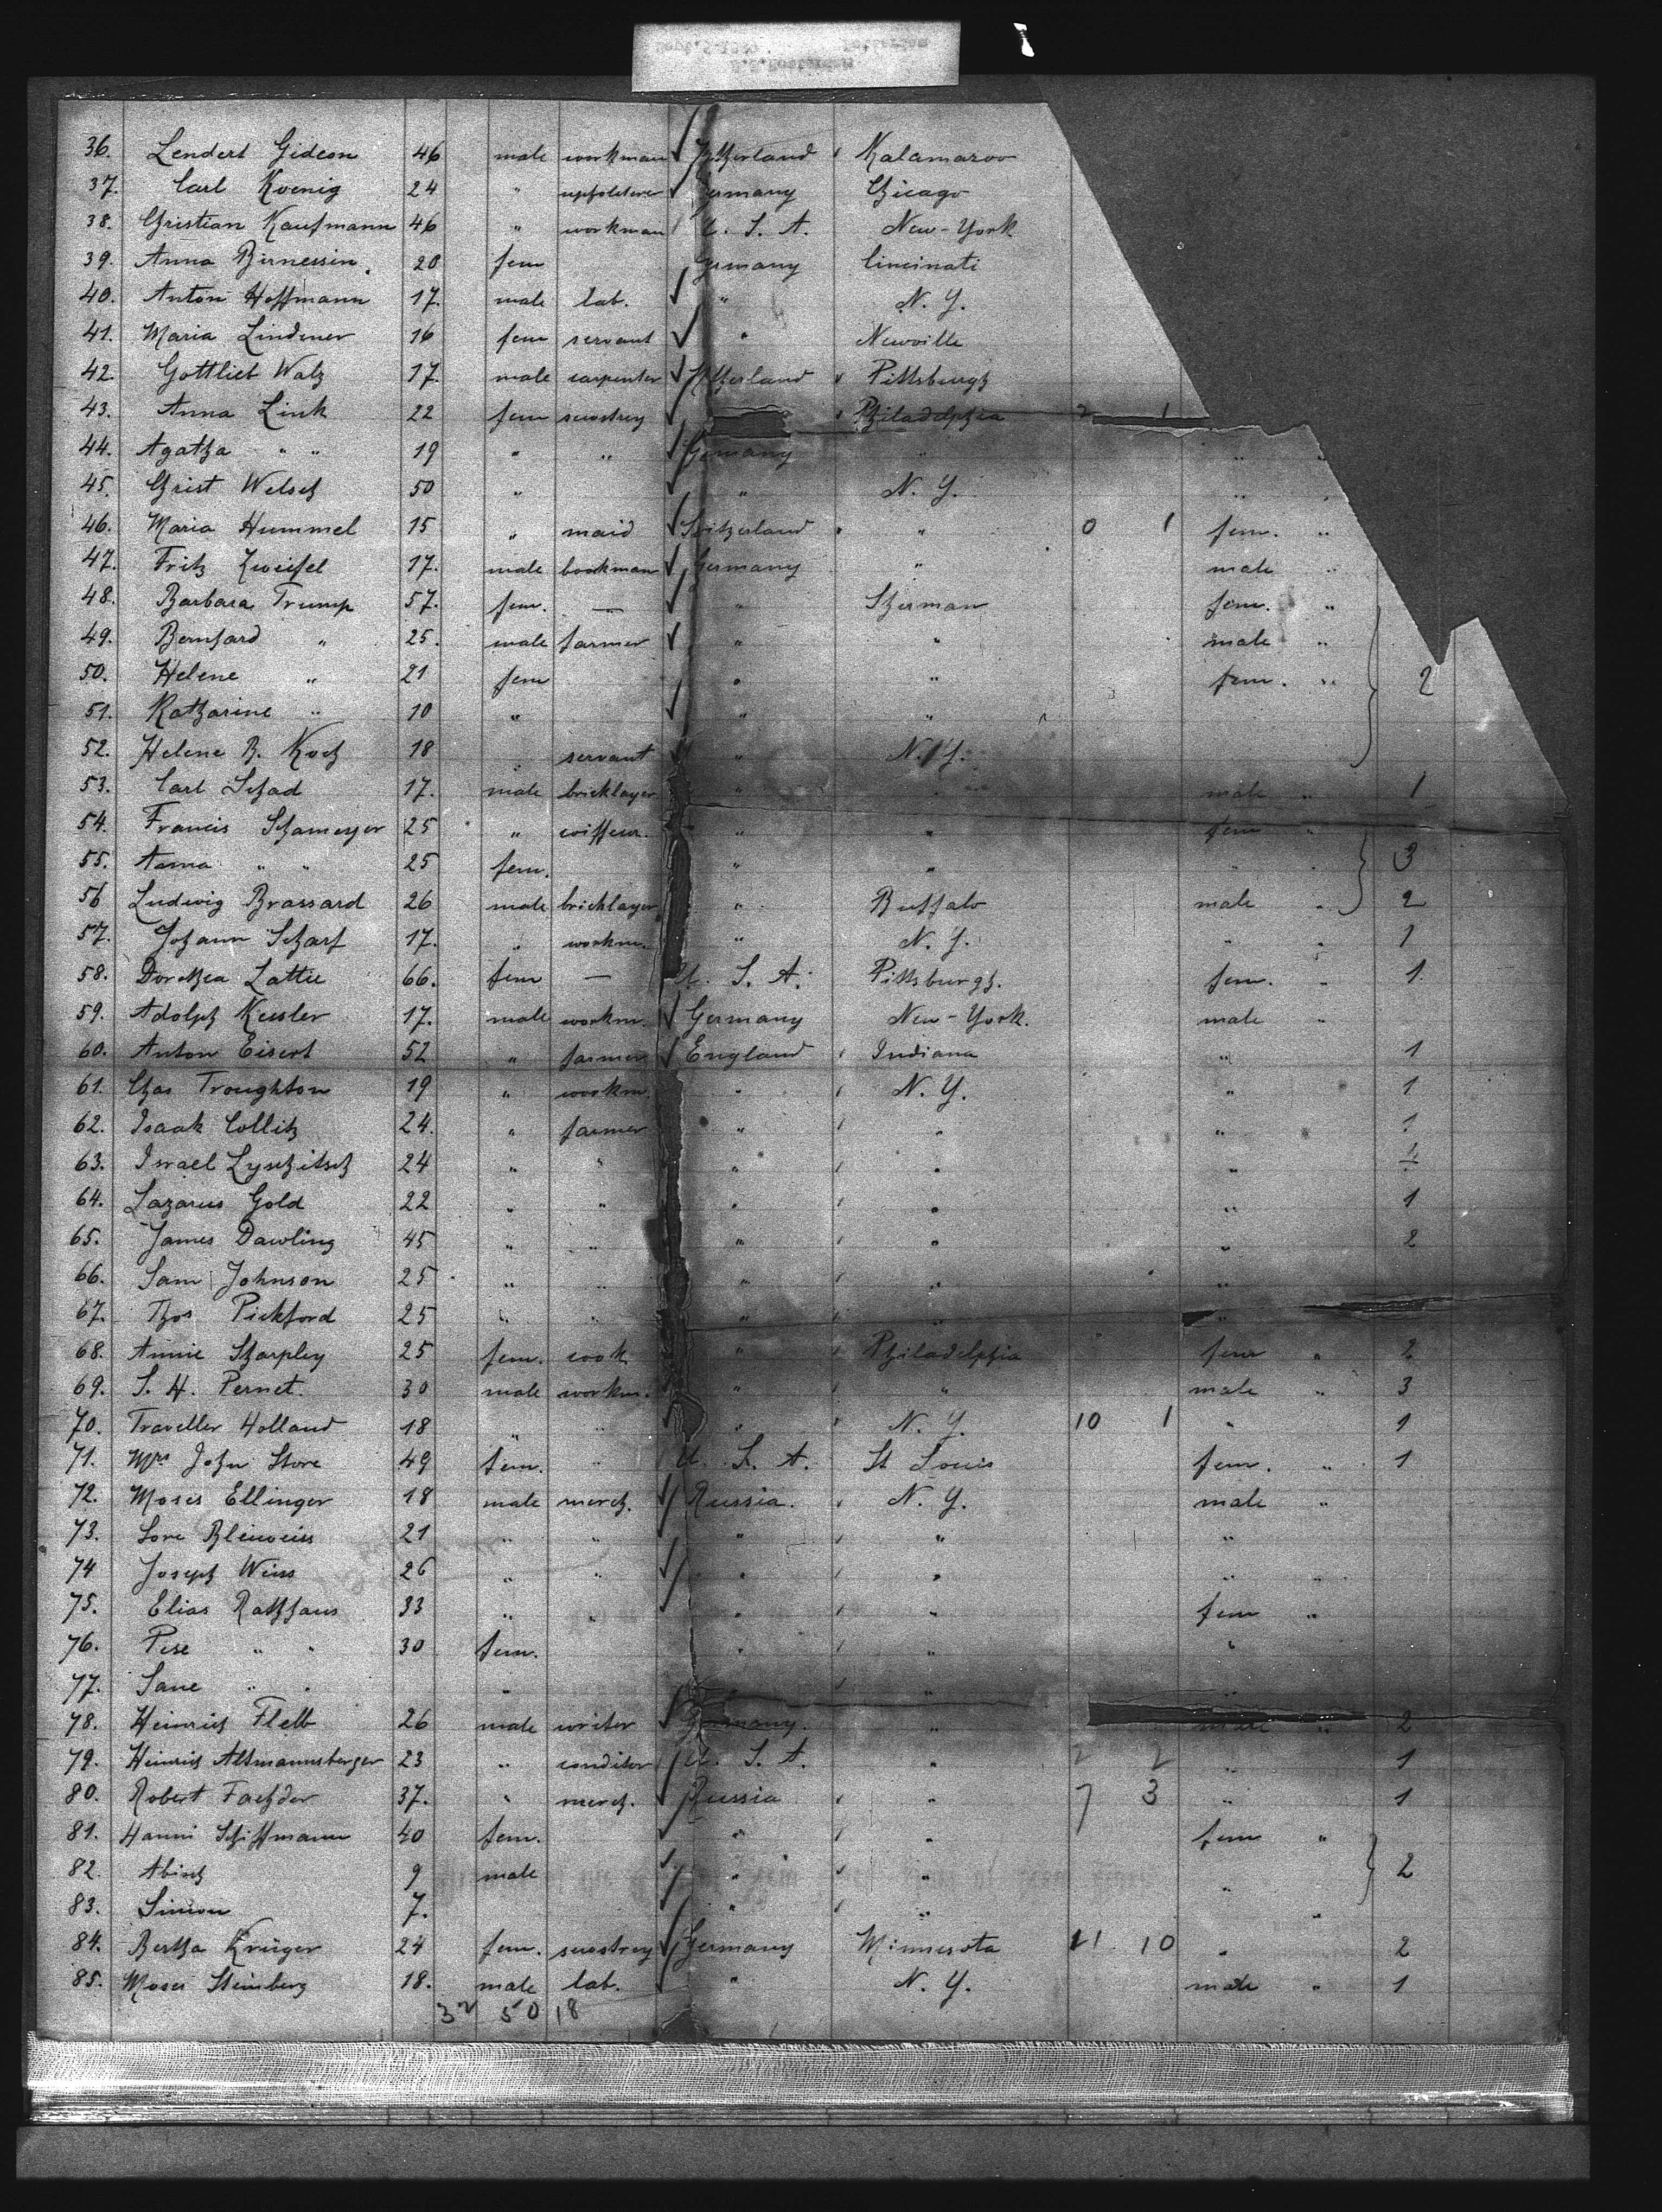 36. Lendert Gideon 46 male workman Kalamazoo
37. Carl Koenig 24 " upholsterer Germany Chicago
38. Christian Kaufmann 46 " workman U. S. A. New-York
39. Anna Birnessin 20 fem Germany Cincinati
40. Anton Hoffmann 17. male lab. " N. Y.
41. Maria Lindener 16 fem servant " Newville
42. Gottlieb Walz 17. male carpenter Pittsburgh
43. Anna Link 22 fem Philadelphia 2 1
44. Agatha " " 19 " " Germany " " "
45. Christ Welsch 50 " " N. Y. " "
46. Maria Hummel 15 " maid Switzerland " " 0 1 fem. "
47. Fritz Zweifel 17. male bookman Germany " male "
48. Barbara Trump 57. fem. — " Sherman fem. "
49. Bernhard " 25. male farmer " " male "
50. Helene " 21 fem " " fem. " 2
51. Katharine " 10 " " "
52. Helene B. Koch 18 " servant " N. Y.
53. Carl Schad 17. male bricklayer " " male " 1
54. Francis Schameyer 25 " coiffeur. " " fem "
55. Anna " " 25 fem. " " " " 3
56 Ludwig Brassard 26 male bricklayer " Buffalo male " 2
57. Johann Scharf 17. " workm. " N. Y. " " 1
58. Dorethea Lattie 66. fem — U. S. A. Pittsburgh. fem. " 1
59. Adolph Kessler 17. male workm. Germany New-York. male "
60. Anton Eisert 52 " farmer England Indiana " 1
61. Chas Troughton 19 " workm. " N. Y. " 1
62. Isaak Collitz 24. " farmer " " " 1
63. Israel Lyschitsch 24 " " " " "
64. Lazarus Gold 22 " " " " " 1
65. James Dawling 45 " " " " " 2
66. Sam Johnson 25 " " " " "
67. Thos Pickford 25 " " " "
68. Annie Sharpley 25 fem. cook " Philadelphia fem " 2
69. S. H. Pernet. 30 male workm. " " male " 3
70. Traveller Holland 18 " " " N. Y. 10 1 " 1
71. Mrs John Store 49 fem. " U. S. A. St Louis fem. " 1
72. Moses Ellinger 18 male merch. Russia. N. Y. male "
73. Bleiweiss 21 " " " " "
74 Joseph Weiss 26 " " " " " "
75. Elias Rathhaus 33 " " " " fem "
76. Pese " " 30 fem. " " "
77. Sane " " " " "
78. Heinrich Flelb 26 male writer Germany. " male " 2
79. Heinrich Altmannsberger 23 " conditor U. S. A. " 2 2 " 1
80. Robert Fachder 37. " merch. Russia " 7 3 " 1
81. Hanni Schiffmann 40 fem. " " fem "
82. Abisch 9 male " " " 2
83. Simon 7. " " "
84. Bertha Krüger 24 fem. Germany Minnesota 11 10 " 2
85. Moses Steinberg 18. male lab. " N. Y. male " 1
32 50 18